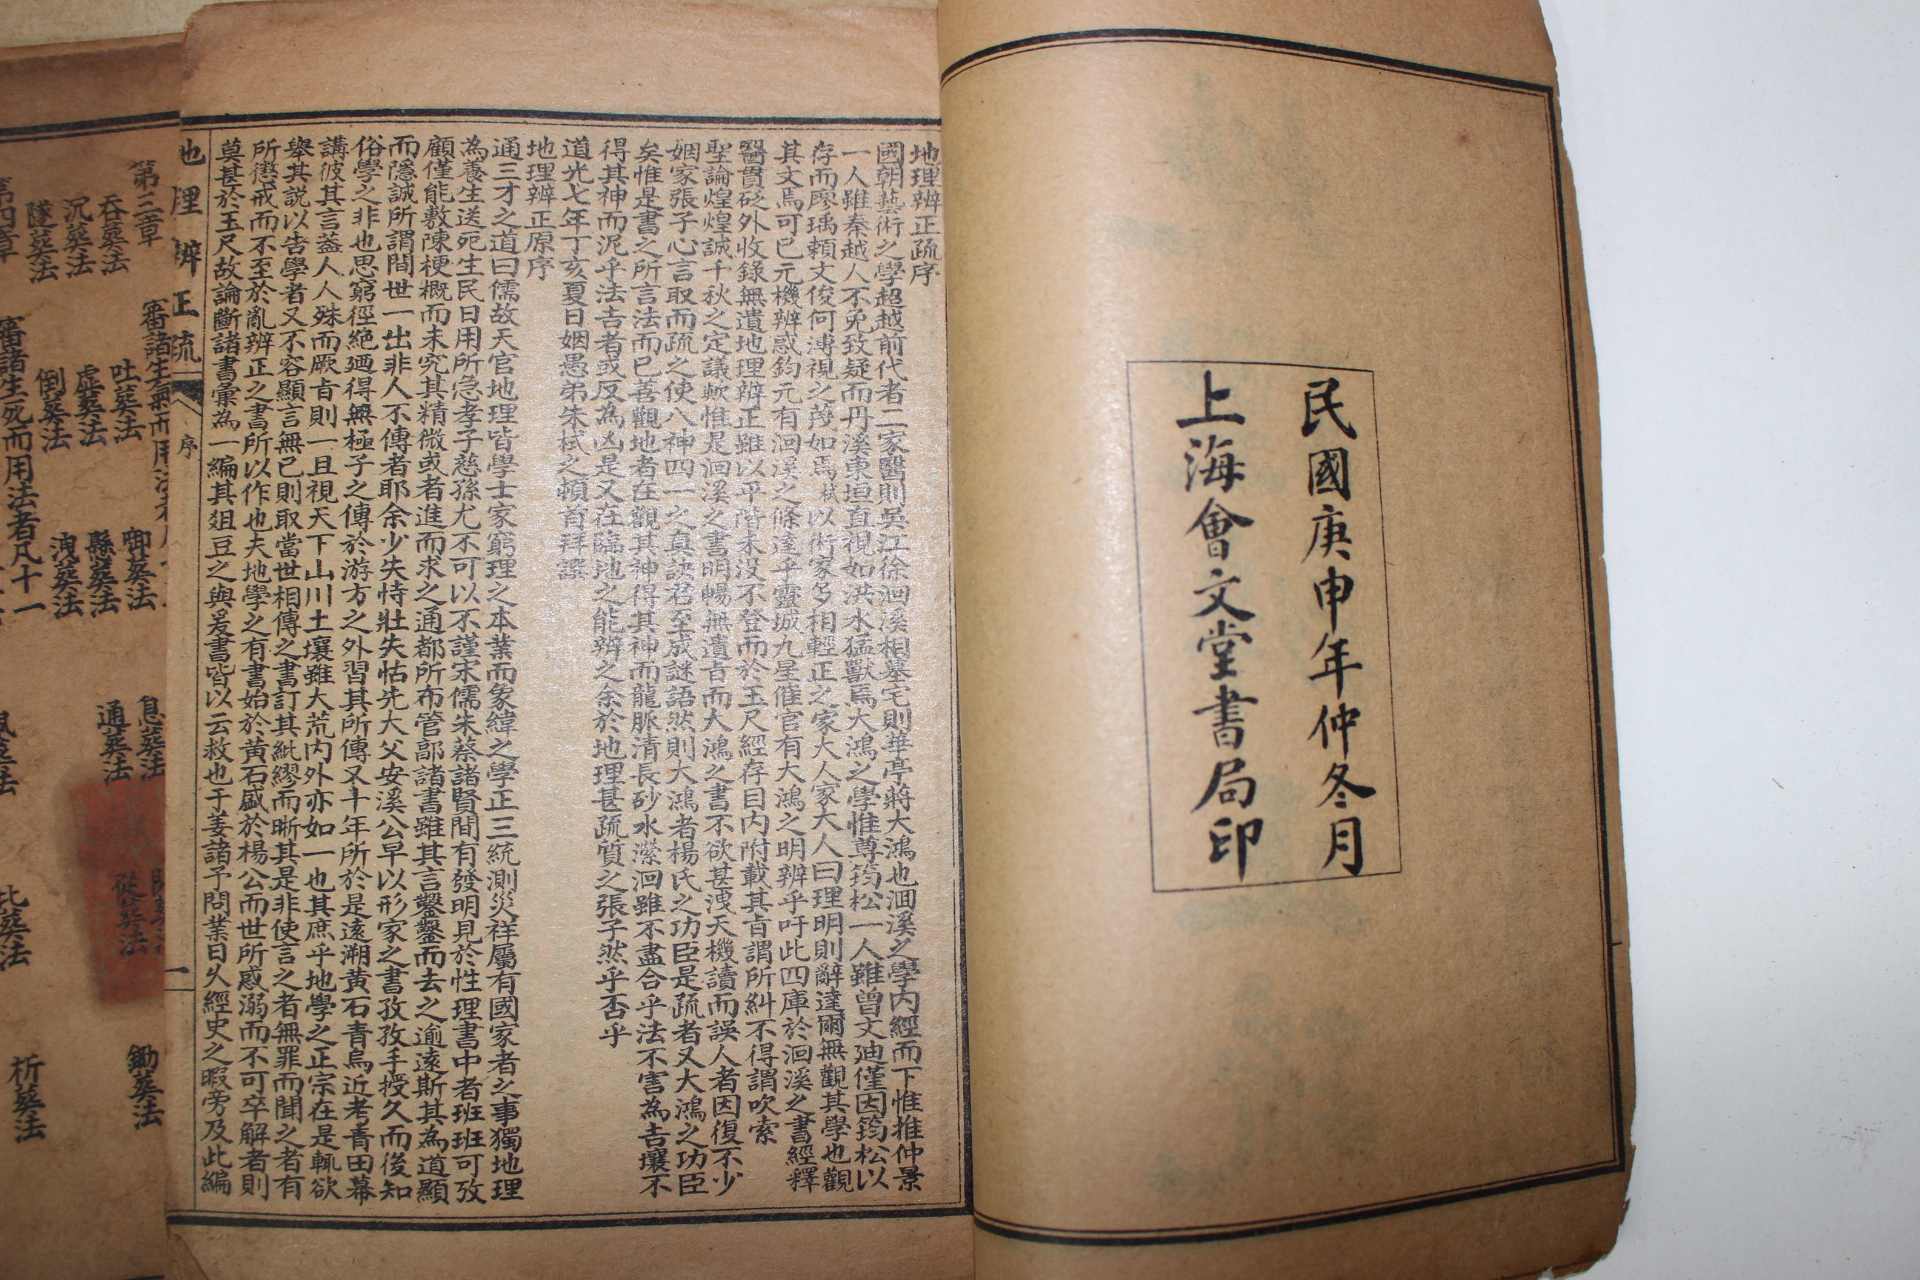 民國庚申年仲冬月
上海會文堂書局印
地理辨正疏序
國朝藝術之學超越前代者二家醫則吳江徐洄溪相墓宅則華亭蔣大鴻也洄溪之學內經而下惟推仲景
一人雖秦越人不免致疑而丹溪東垣直視如洪水猛獸焉大鴻之學惟尊筠松一人雖曾文迪僅因筠松以
存而廖瑀賴文俊何溥視之蔑如焉栻以術家多相輕正之家大人家大人曰理明則辭達爾無觀其學也觀
其文焉可已元機辨惑鈞元有洄溪之條達乎靈城九星催官有大鴻之明辨乎吁此四庫於洄溪之書經釋
醫貫砭外收錄無遺地理辨正雖以平階未沒不登而於玉尺經存目內附載其旨謂所糾不得謂吹索
聖論煌煌誠千秋之定議歟惟是洄溪之書明暢無遺旨而大鴻之書不欲甚洩天機讀而誤人者因復不少
姻家張子心言取而疏之使八神四一之真訣君至成謎語然則大鴻者楊氏之功臣是疏者又大鴻之功臣
矣惟是書之所言法而已善觀地者在觀其神得其神而龍脈清長砂水瀠洄雖不盡合乎法不害為吉壤不
得其神而泥乎法吉者或反為凶是又在臨地之能辨之余於地理甚疏質之張子然乎否乎
道光七年丁亥夏日姻愚弟朱栻之頓首拜譔
地理辨正原序
通三才之道曰儒故天官地理皆學士家窮理之本業而象緯之學正三統測災祥屬有國家者之事獨地理
為養生送死生民日用所急孝子慈孫尤不可以不謹宋儒朱蔡諸賢間有發明見於性理書中者班班可攷
顧僅能敷陳梗概而未究其精微或者進而求之通都所布管郭諸書雖其言鑿鑿而去之逾遠斯其為道顯
而隱誠所謂間世一出非人不傳者耶余少失恃壯失怙先大父安溪公早以形家之書孜孜手授久而後知
俗學之非也思窮徑絕廼得無極子之傳於游方之外習其所傳又十年所於是遠溯黃石青烏近考青田幕
講彼其言蓋人人殊而厥旨則一且視天下山川土壤雖大荒內外亦如一也其庶乎地學之正宗在是輒欲
舉其說以告學者又不容顯言無已則取當世相傳之書訂其紕繆而晰其是非使言之者無罪而聞之者有
所懲戒而不至於亂辨正之書所以作也夫地學之有書始於黃石盛於楊公而世所惑溺而不可卒解者則
莫甚於玉尺故論斷諸書彙為一編其俎豆之與爰書皆以云救也于姜諸予問業日久經史之暇旁及此編
地理辨正疏
序
一
第三章
審諸生氣而用法
吞葬法
吐葬法
啣葬法
息葬法
鋤葬法
沉葬法
虛葬法
懸葬法
通葬法
從葬法
墜葬法
倒葬法
洩葬法
析葬法
第四章
審諸生死而用法者凡十一
比葬法